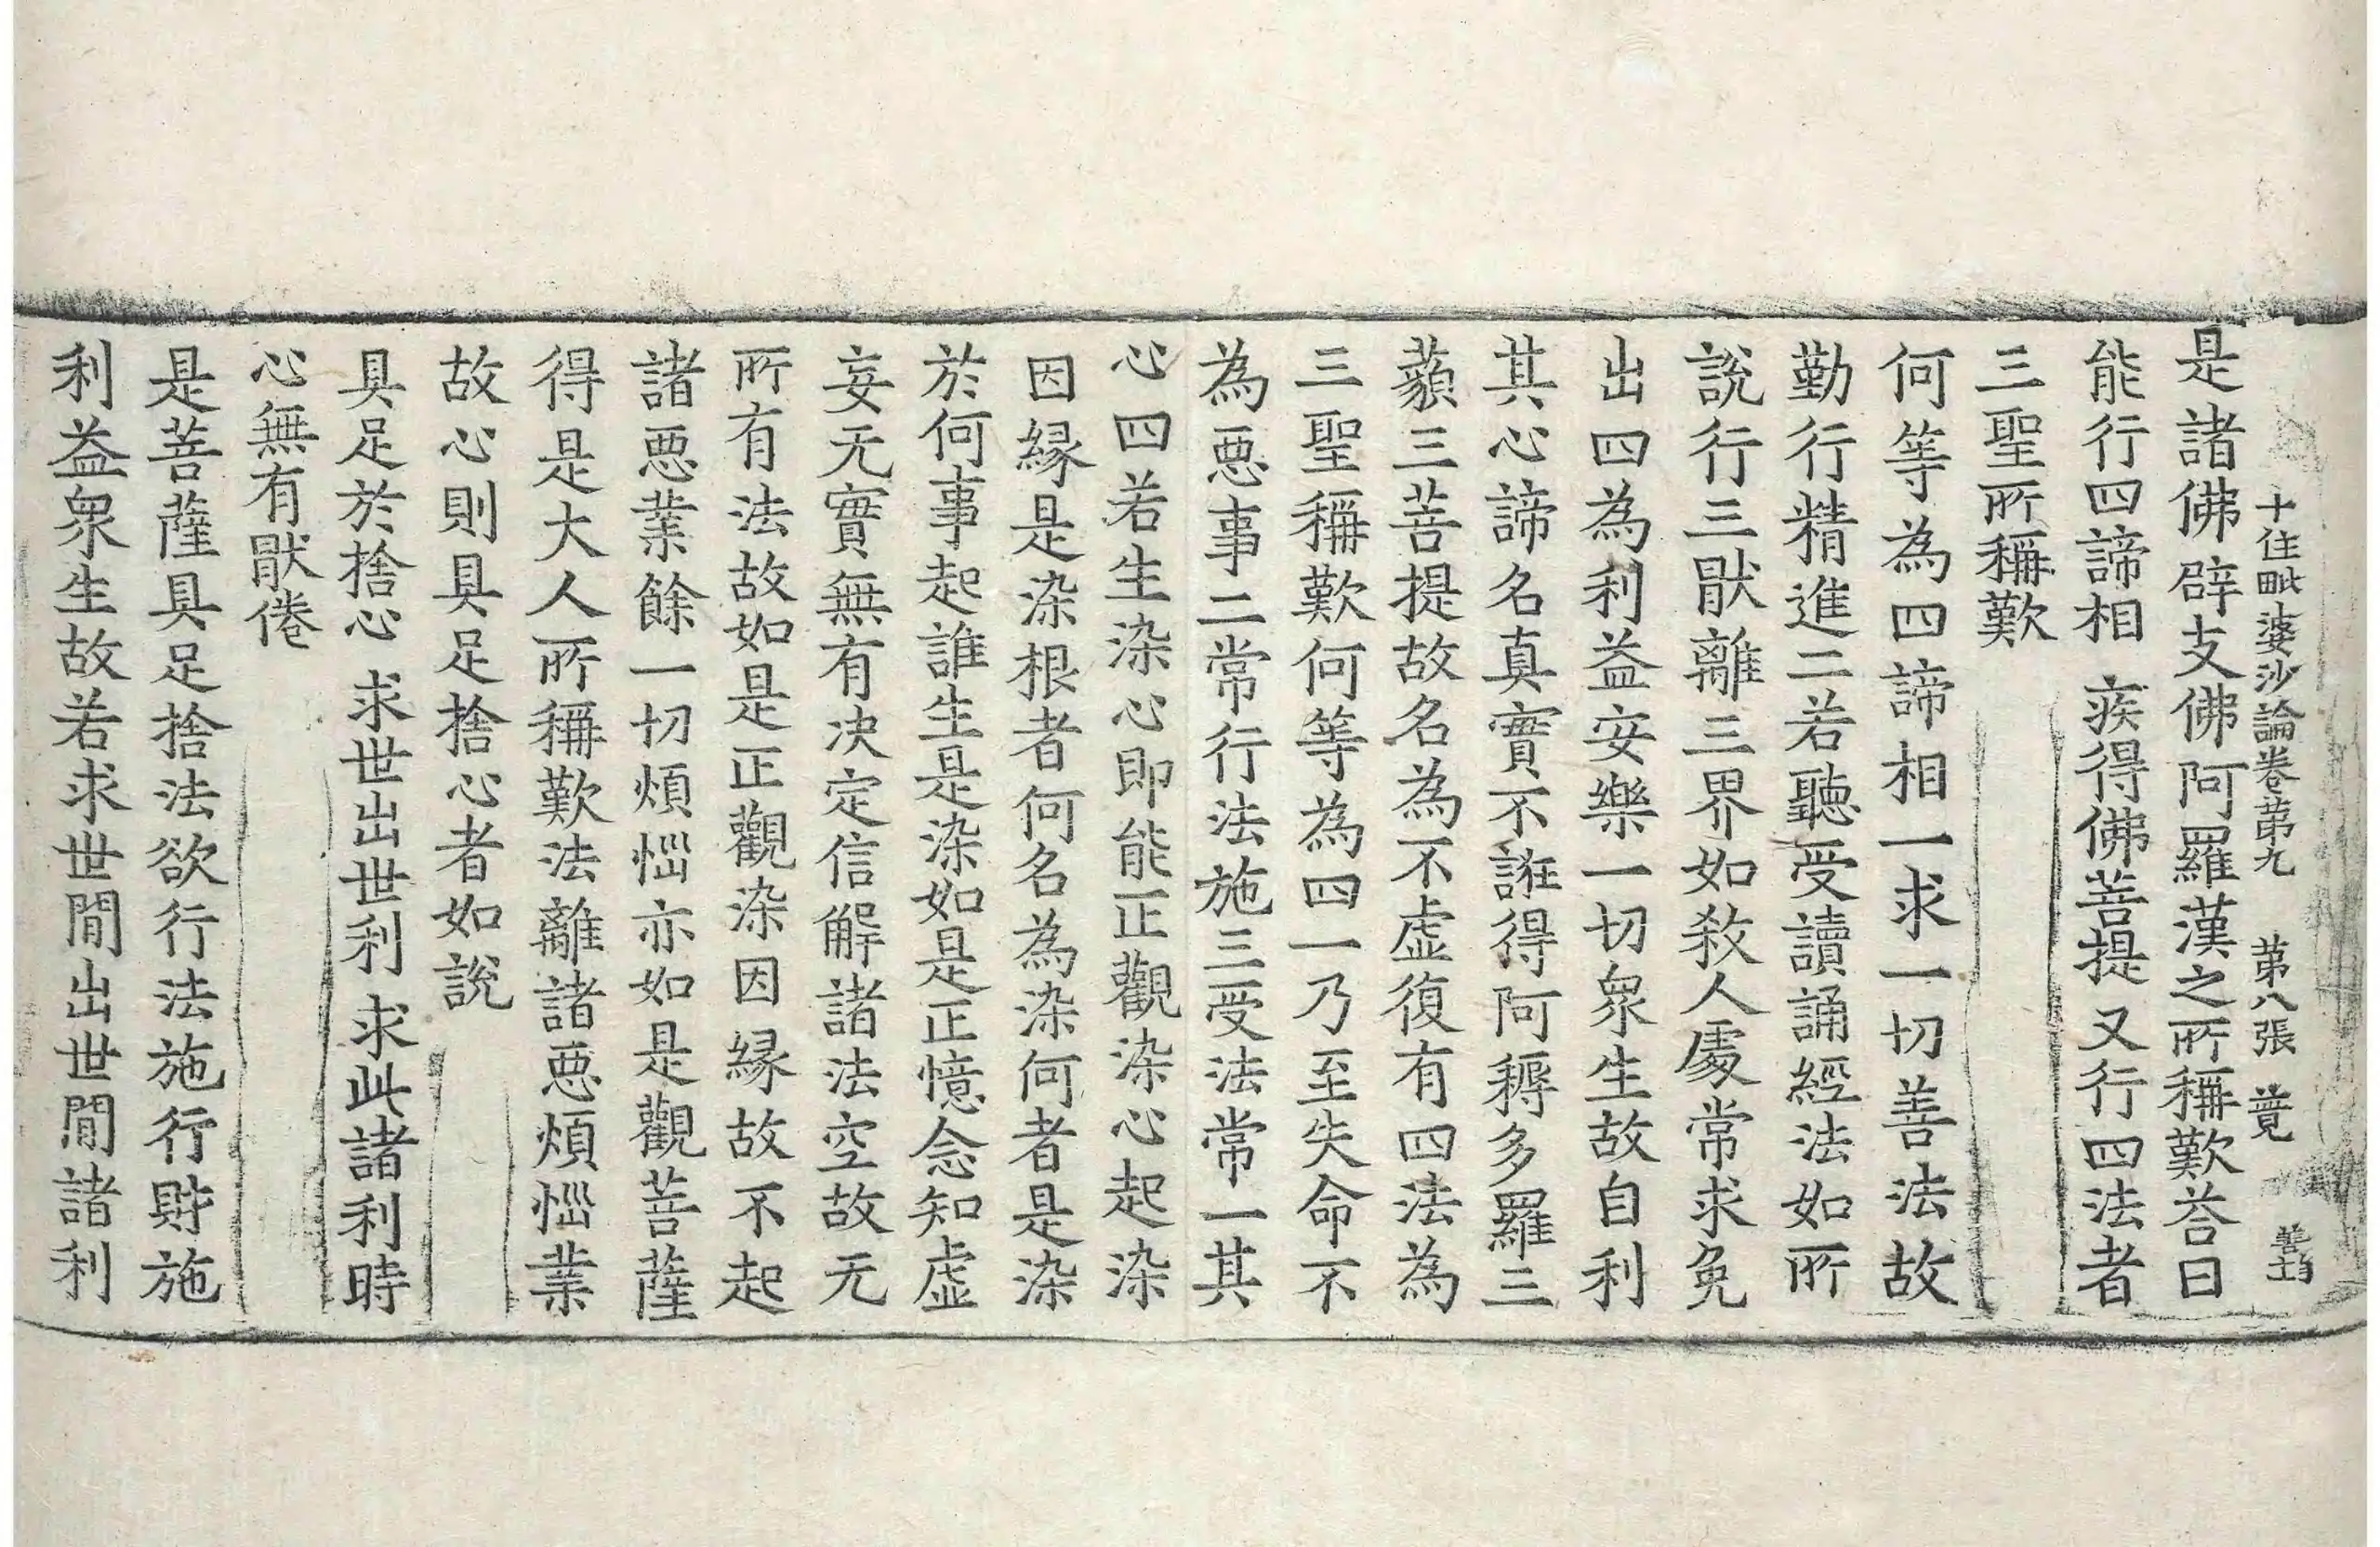 十住毗婆沙論卷苐九　苐八張　㝵
是諸佛辟支佛阿羅漢之所稱歎荅曰
能行四諦相　疾得佛菩提　又行四法者
三聖所稱歎
何等為四諦相一求一切善法故
勤行精進二若聽受讀誦經法如所
說行三猒離三界如敎人處常求免
出四為利益安樂一切衆生故自利
其心諦名真實不誑得阿耨多羅三
藐三菩提故名為不虛復有四法為
三聖稱歎何等為四一乃至失命不
為惡事二常行法施三受法常一其
心四若生染心即能正觀染心起染
因緣是染根者何名為染何者是染
於何事起誰生是染如是正憶念知虛
妄无實無有決定信解諸法空故无
所有法故如是正觀染因緣故不起
諸惡業餘一切煩惱亦如是觀菩薩
得是大人所稱歎法離諸惡煩惱業
故心則具足捨心者如說
具足於捨心　求世出世利　求此諸利時
心無有猒倦
是菩薩具足捨法欲行法施行財施
利益衆生故若求世間出世間諸利